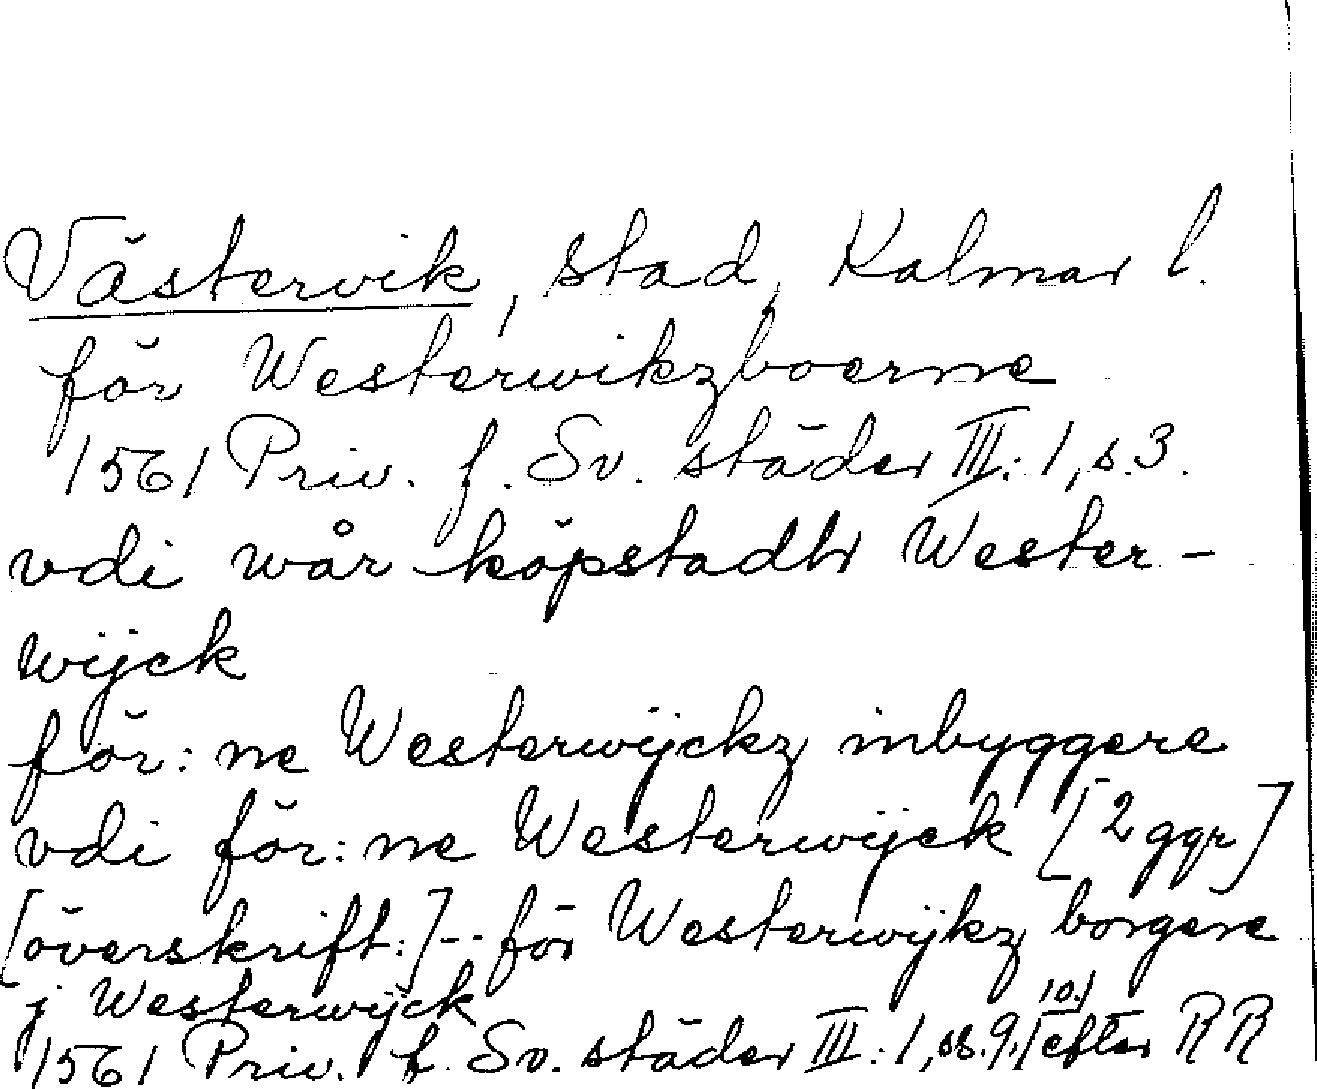 Västervik, stad, Kalmar l.
för Westerwikzboerne
1561 Priv. f. Sv. städer III: 1, s. 3.
vdi wår köpstadh Wester-
wijck
för:ne Westerwijckz inbyggere
vdi för:ne Westerwijck [2 ggr]
[överskrift:] -- för Westerwijkz borgere
j Westerwijck
1561 Priv. f. Sv. städer III: 1, ss. 9, 10 efter RR